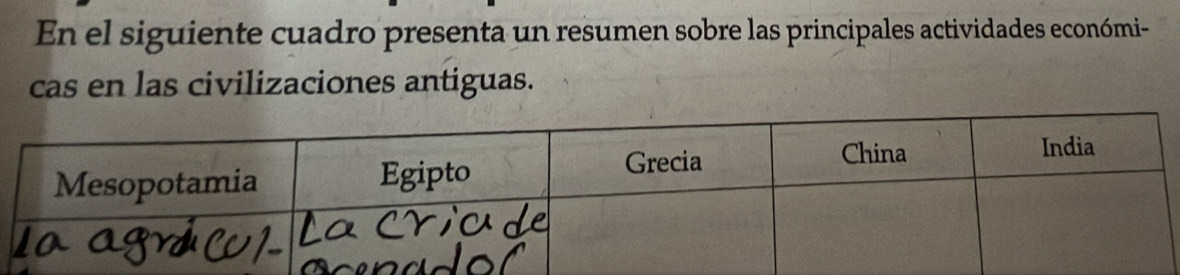 En el siguiente cuadro presenta un resumen sobre las principales actividades económi-
cas en las civilizaciones antiguas.
Mesopotamia Egipto Grecia China India
la agrícul- La cria de